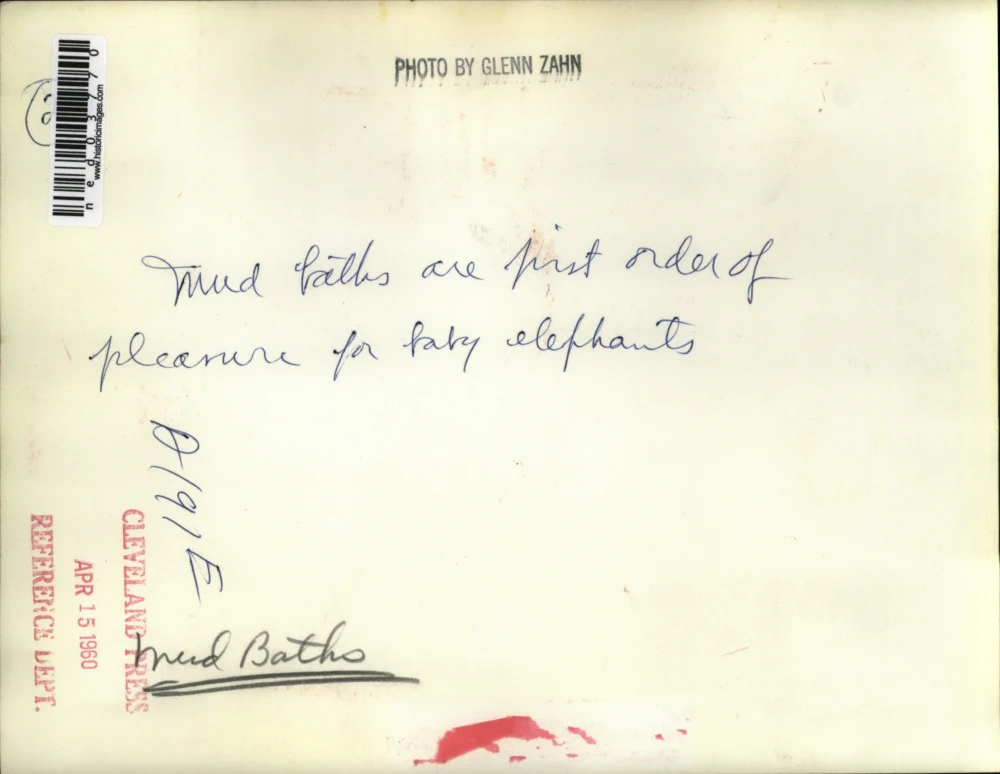 PHOTO BY GLENN ZAHN
ned03770
www.historicimages.com
2
Mud baths are first order of
pleasure for baby elephants
CLEVELAND PRESS
APR 15 1960
REFERENCE DEPT.
Mud Baths